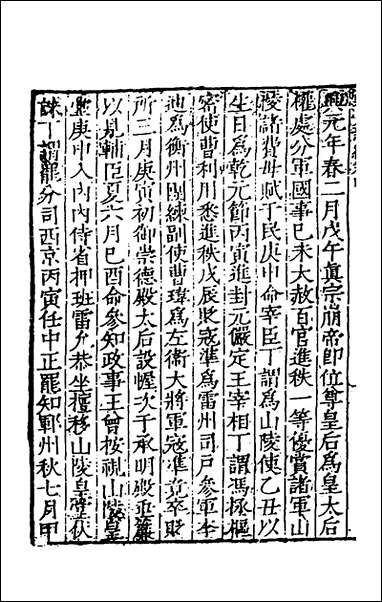 興元年春二月戊午眞宗崩帝即位尊皇后爲皇太后
權處分軍國事巳未大赦百官進秩一等優賞諸軍山
陵諸費毋賦于民庚申命宰臣丁謂爲山陵使乙丑以
生日爲乾元節丙寅進封元儼定王宰相丁謂馮拯樞
密使曹利用悉進秩戊辰貶宼準爲雷州司戶參軍李
迪爲衡州團練副使曹瑋爲左衞大將軍宼準竟卒貶
所三月庚寅初御崇德殿太后設幄次于承明殿垂簾
以見輔臣夏六月巳酉命參知政事王曾按視山陵皇
堂庚申入內內侍省押班雷允恭坐擅移山陵皇堂伏
誅丁謂罷分司西京丙寅任中正罷知鄆州秋七月甲